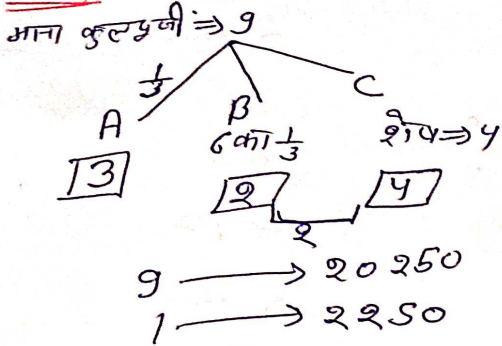 माना कुल पूजीं ⇒ 9
1/3
A B C
6 का 1/3 शेष ⇒ 4
3 2 4
2
9 → 20250
1 → 2250